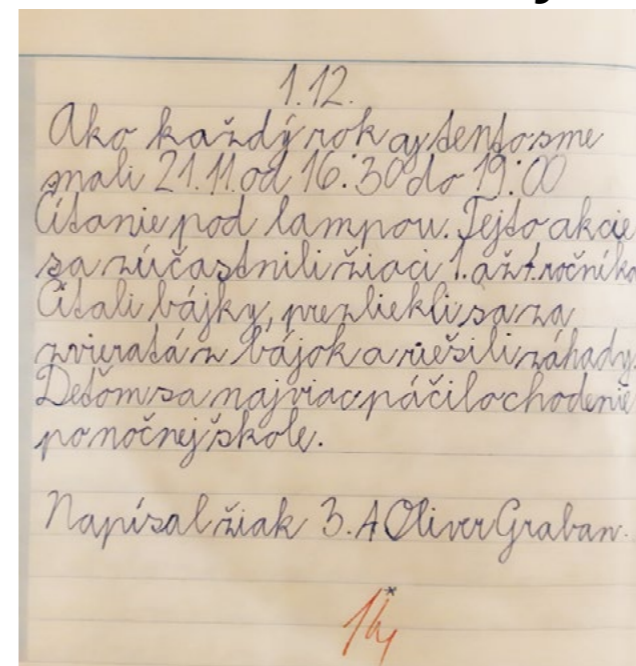 1.12.
Ako každý rok aj tento sme
mali 21.11. od 16:30 do 19:00
Čítanie pod lampou. Tejto akcie
sa zúčastnili žiaci 1. až 4. ročníka
Čítali bájky, prezliekli sa za
zvieratá z bájok a riešili záhady.
Deťom sa najviac páčilo chodenie
po nočnej škole.
Napísal žiak 3. A Oliver Graban.